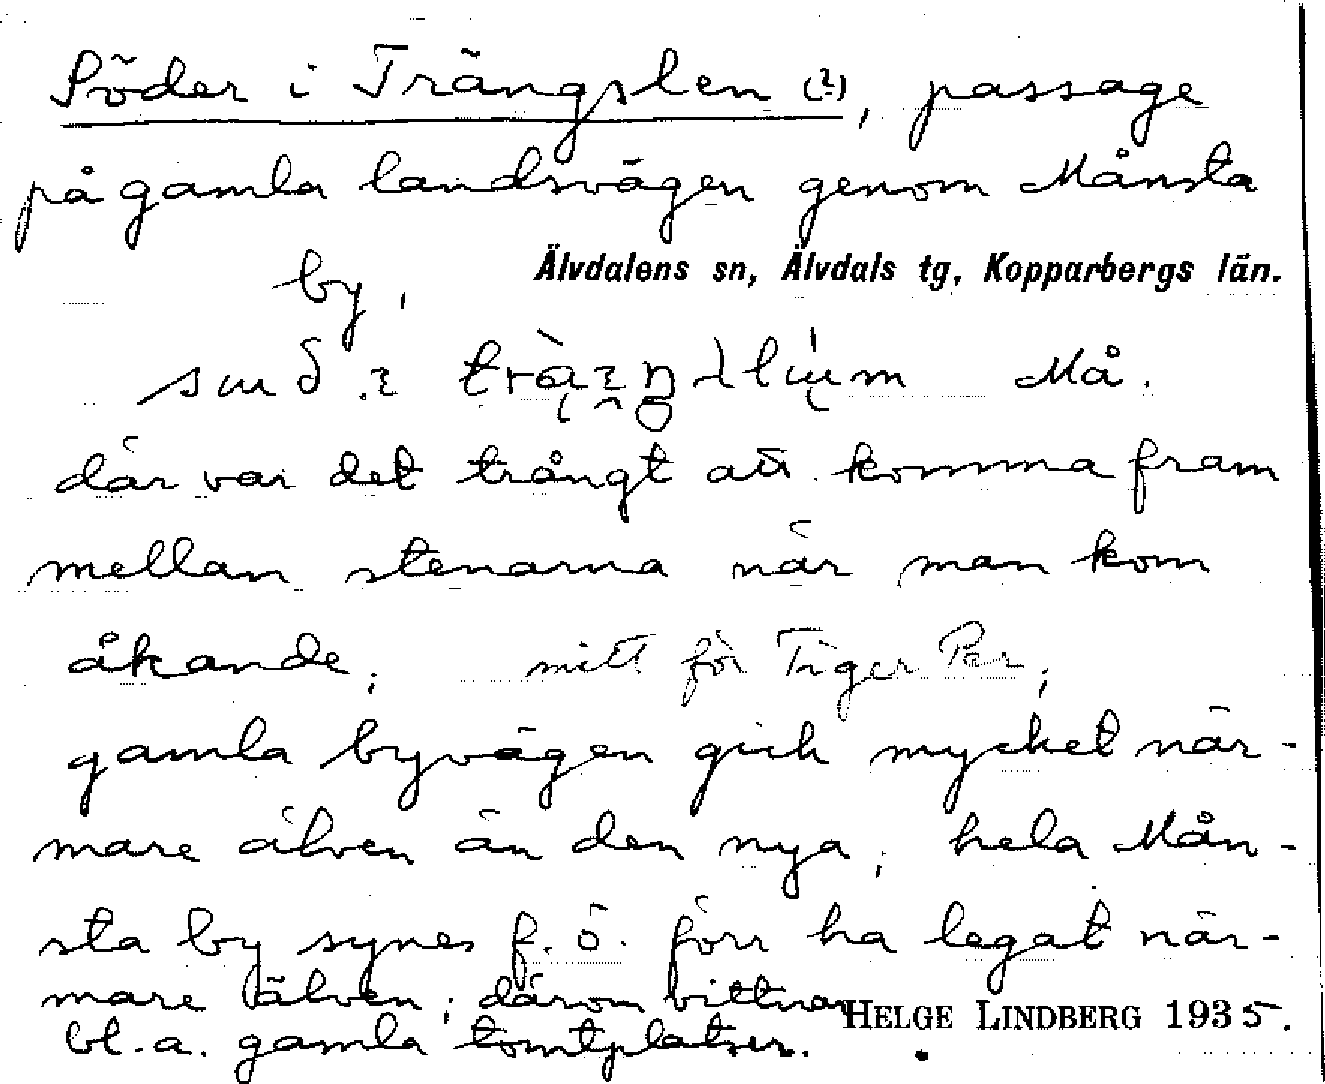 Söder i Trängslen (?), passage
på gamla landsvägen genom Månsta
by,
Älvdalens sn, Älvdals tg, Kopparbergs län.
Må.
där var det trångt att komma fram
mellan stenarna när man kom
åkande; mitt för Tiger Per;
gamla byvägen gick mycket när-
mare älven än den nya; hela Mån-
sta by synes f. ö. förr ha legat när-
mare älven; därom vittnar
bl. a. gamla tomtplatser.
HELGE LINDBERG 1935.